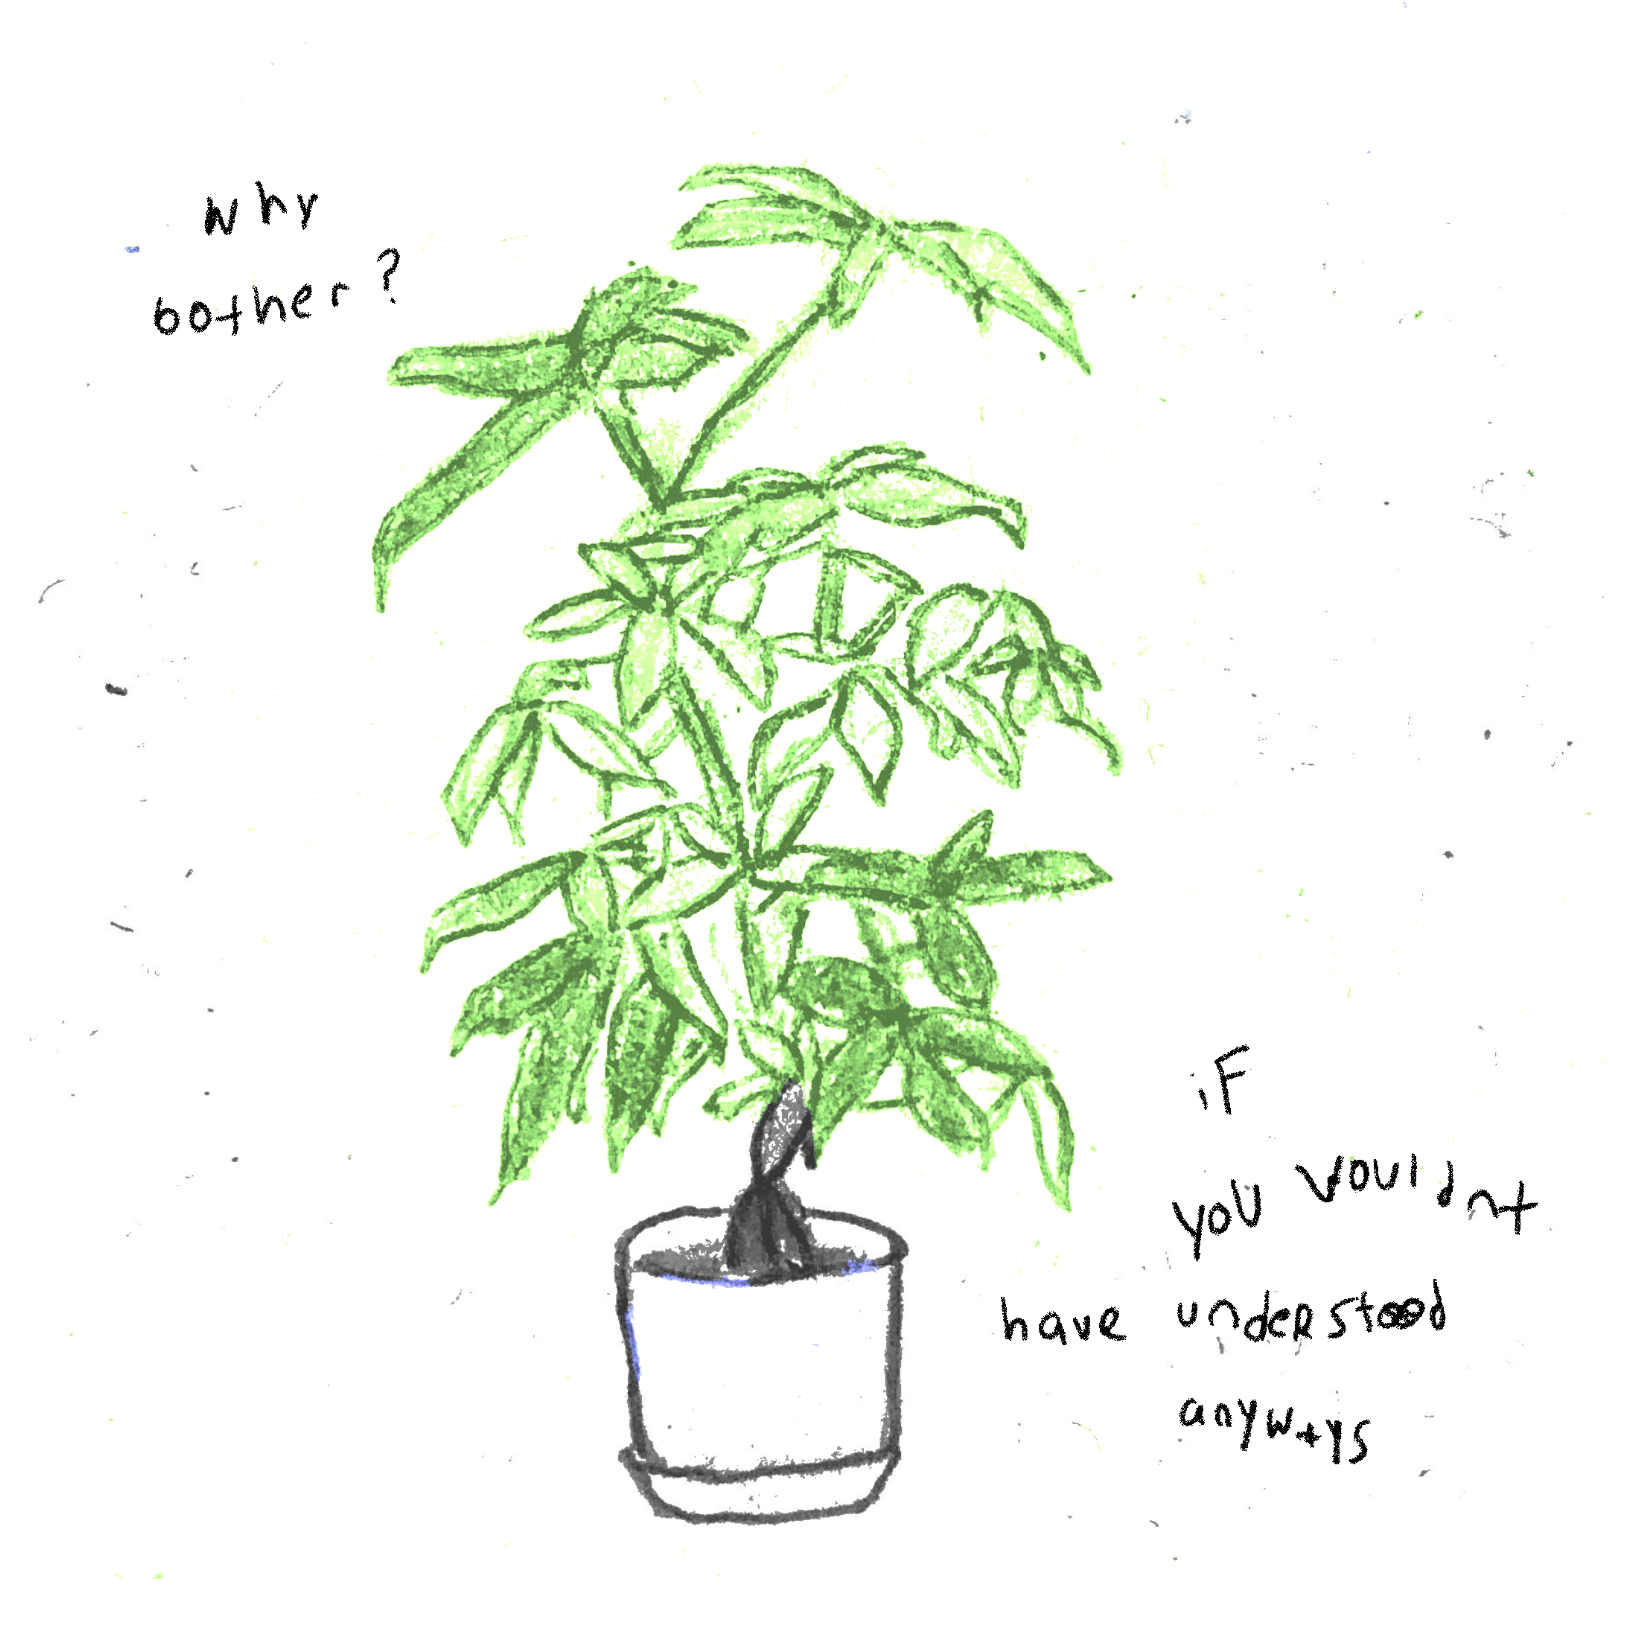 why
bother?
if
you vouldnt
have understood
anyw+ys